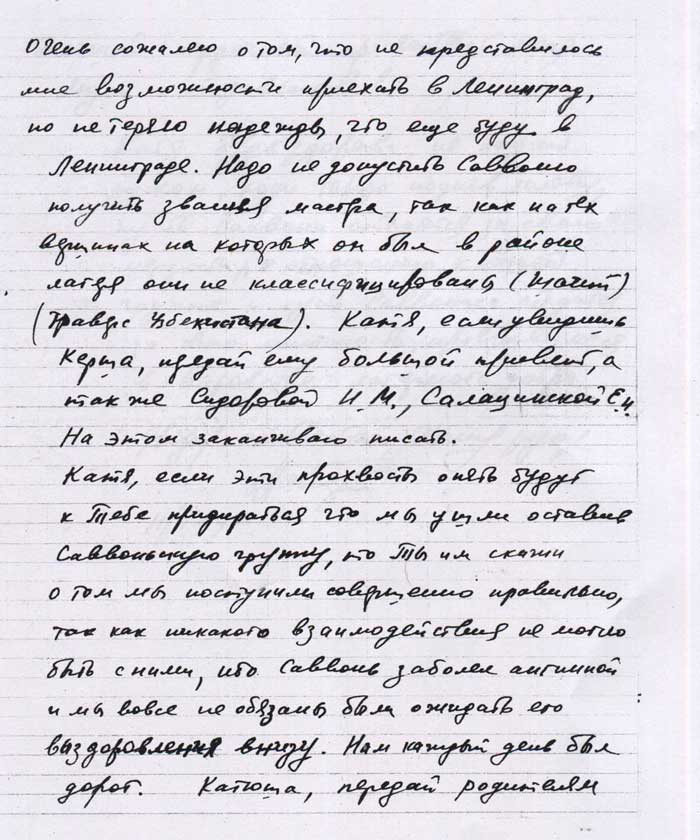 очень сожалею о том, что не представилось
мне возможности приехать в Ленинград,
но не теряю надежды, что еще буду в
Ленинграде. Надо не допустить Саввоню
получить звания мастра, так как на тех
вершинах на которых он был в районе
лагеря они не классифицированы (значит)
(Траверс Узбекистана). Катя, если увидишь
Керша, предай ему большой привет, а
также Сидоровой И.М., Салацинской Е.И.
На этом заканчиваю писать.
Катя, если эти прохвосты опять будут
к Тебе придираться что мы ушли оставив
Саввоньскую группу, то Ты им скажи
о том мы поступили совершенно правильно,
так как никакого взаимодействия не могло
быть с ними, ибо Саввонь заболел ангиной
и мы вовсе не обязаны были ожидать его
выздоровления внизу. Нам каждый день был
дорог. Катюша, передай родителям